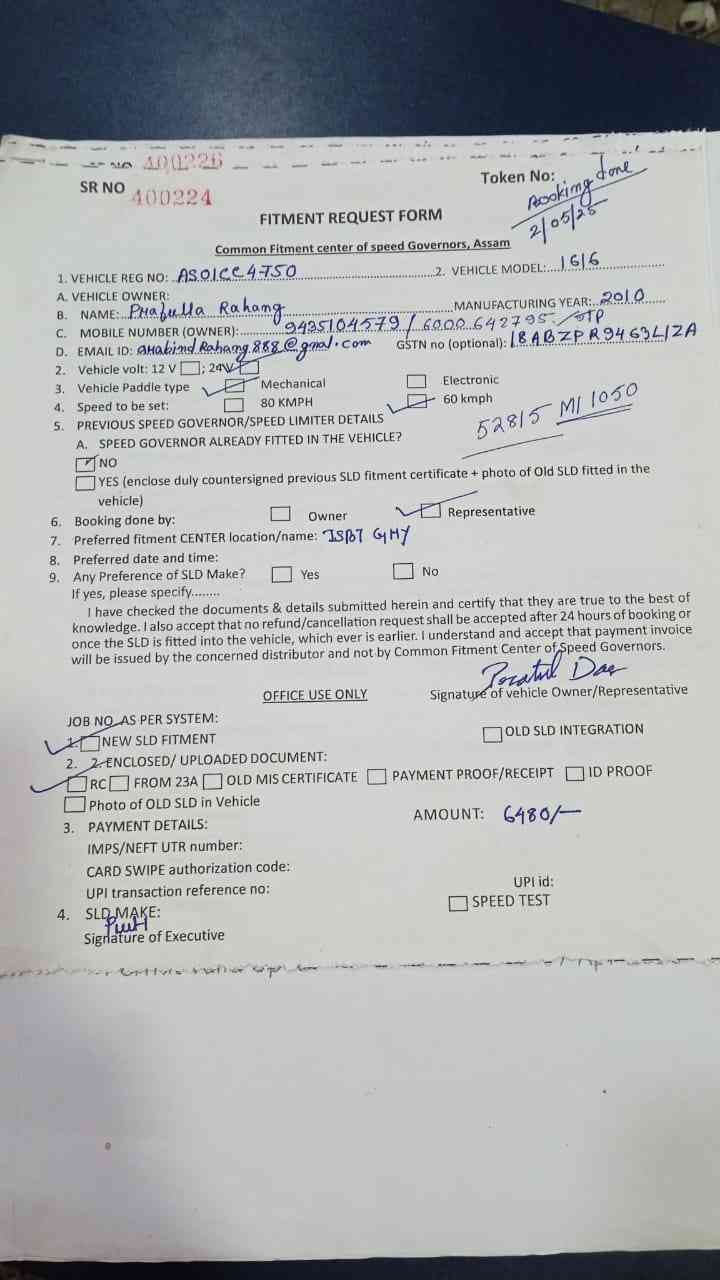 NO 400226
SR NO 400224
Token No:
Booking done
2/05/25
FITMENT REQUEST FORM
Common Fitment center of speed Governors, Assam
1. VEHICLE REG NO: AS01CC4750 2. VEHICLE MODEL: 1616
A. VEHICLE OWNER:
B. NAME: Prafulla Rahang MANUFACTURING YEAR: 2010
C. MOBILE NUMBER (OWNER): 9435104579 / 6000642795 OTP
D. EMAIL ID: GSTN no (optional): 18ABZPR9463L1ZA
2. Vehicle volt: 12 V ; 24V
3. Vehicle Paddle type Mechanical Electronic
4. Speed to be set: 80 KMPH 60 kmph
5. PREVIOUS SPEED GOVERNOR/SPEED LIMITER DETAILS
52815 M11050
A. SPEED GOVERNOR ALREADY FITTED IN THE VEHICLE?
NO
YES (enclose duly countersigned previous SLD fitment certificate + photo of Old SLD fitted in the
vehicle)
6. Booking done by: Owner Representative
7. Preferred fitment CENTER location/name: ISBT GHY
8. Preferred date and time:
9. Any Preference of SLD Make? Yes No
If yes, please specify........
I have checked the documents & details submitted herein and certify that they are true to the best of
knowledge. I also accept that no refund/cancellation request shall be accepted after 24 hours of booking or
once the SLD is fitted into the vehicle, which ever is earlier. I understand and accept that payment invoice
will be issued by the concerned distributor and not by Common Fitment Center of Speed Governors.
Das
OFFICE USE ONLY Signature of vehicle Owner/Representative
JOB NO AS PER SYSTEM:
1. NEW SLD FITMENT OLD SLD INTEGRATION
2. 2. ENCLOSED/ UPLOADED DOCUMENT:
RC FROM 23A OLD MIS CERTIFICATE PAYMENT PROOF/RECEIPT ID PROOF
Photo of OLD SLD in Vehicle
3. PAYMENT DETAILS: AMOUNT: 6480/-
IMPS/NEFT UTR number:
CARD SWIPE authorization code:
UPI transaction reference no: UPI id:
4. SLD MAKE: SPEED TEST
Signature of Executive